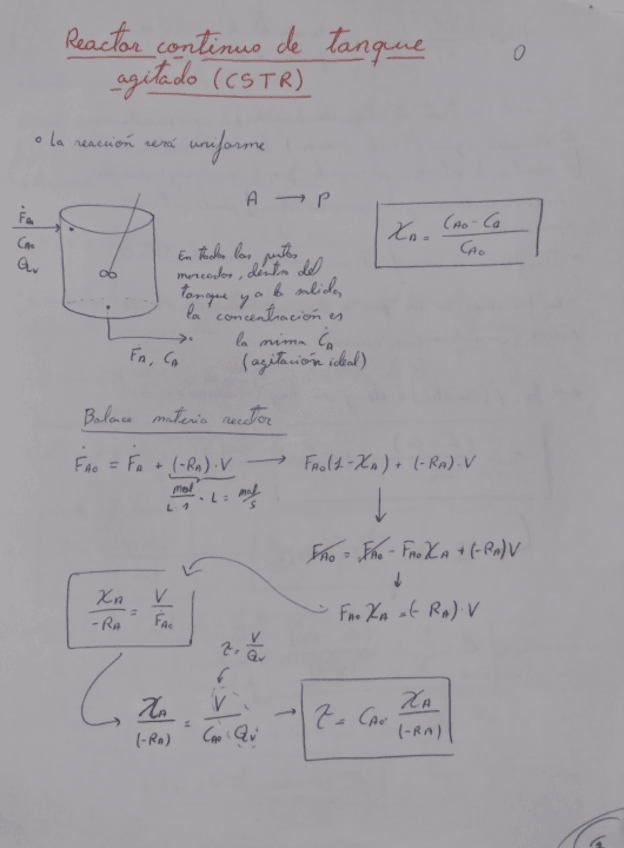 Reactor continuo de tanque
agitado (CSTR)
0
• La reacción será uniforme
A → P
χA = (CA0 - CA) / CA0
ḞA0
CA0
Qv
En todos los puntos
marcados, dentro del
tanque y a la salida,
la concentración es
la misma CA
(agitación ideal)
FA, CA
Balace materia reactor
ḞA0 = ḞA + (-RA)·V → FA0(1-χA) + (-RA)·V
mol / L·s · L = mol/s
FA0 = FA0 - FA0 χA + (-RA)V
FA0 χA = (-RA)·V
χA / -RA = V / ḞA0
τ = V / Qv
χA / (-RA) = V / (CA0·Qv) → τ = CA0· χA / (-RA)